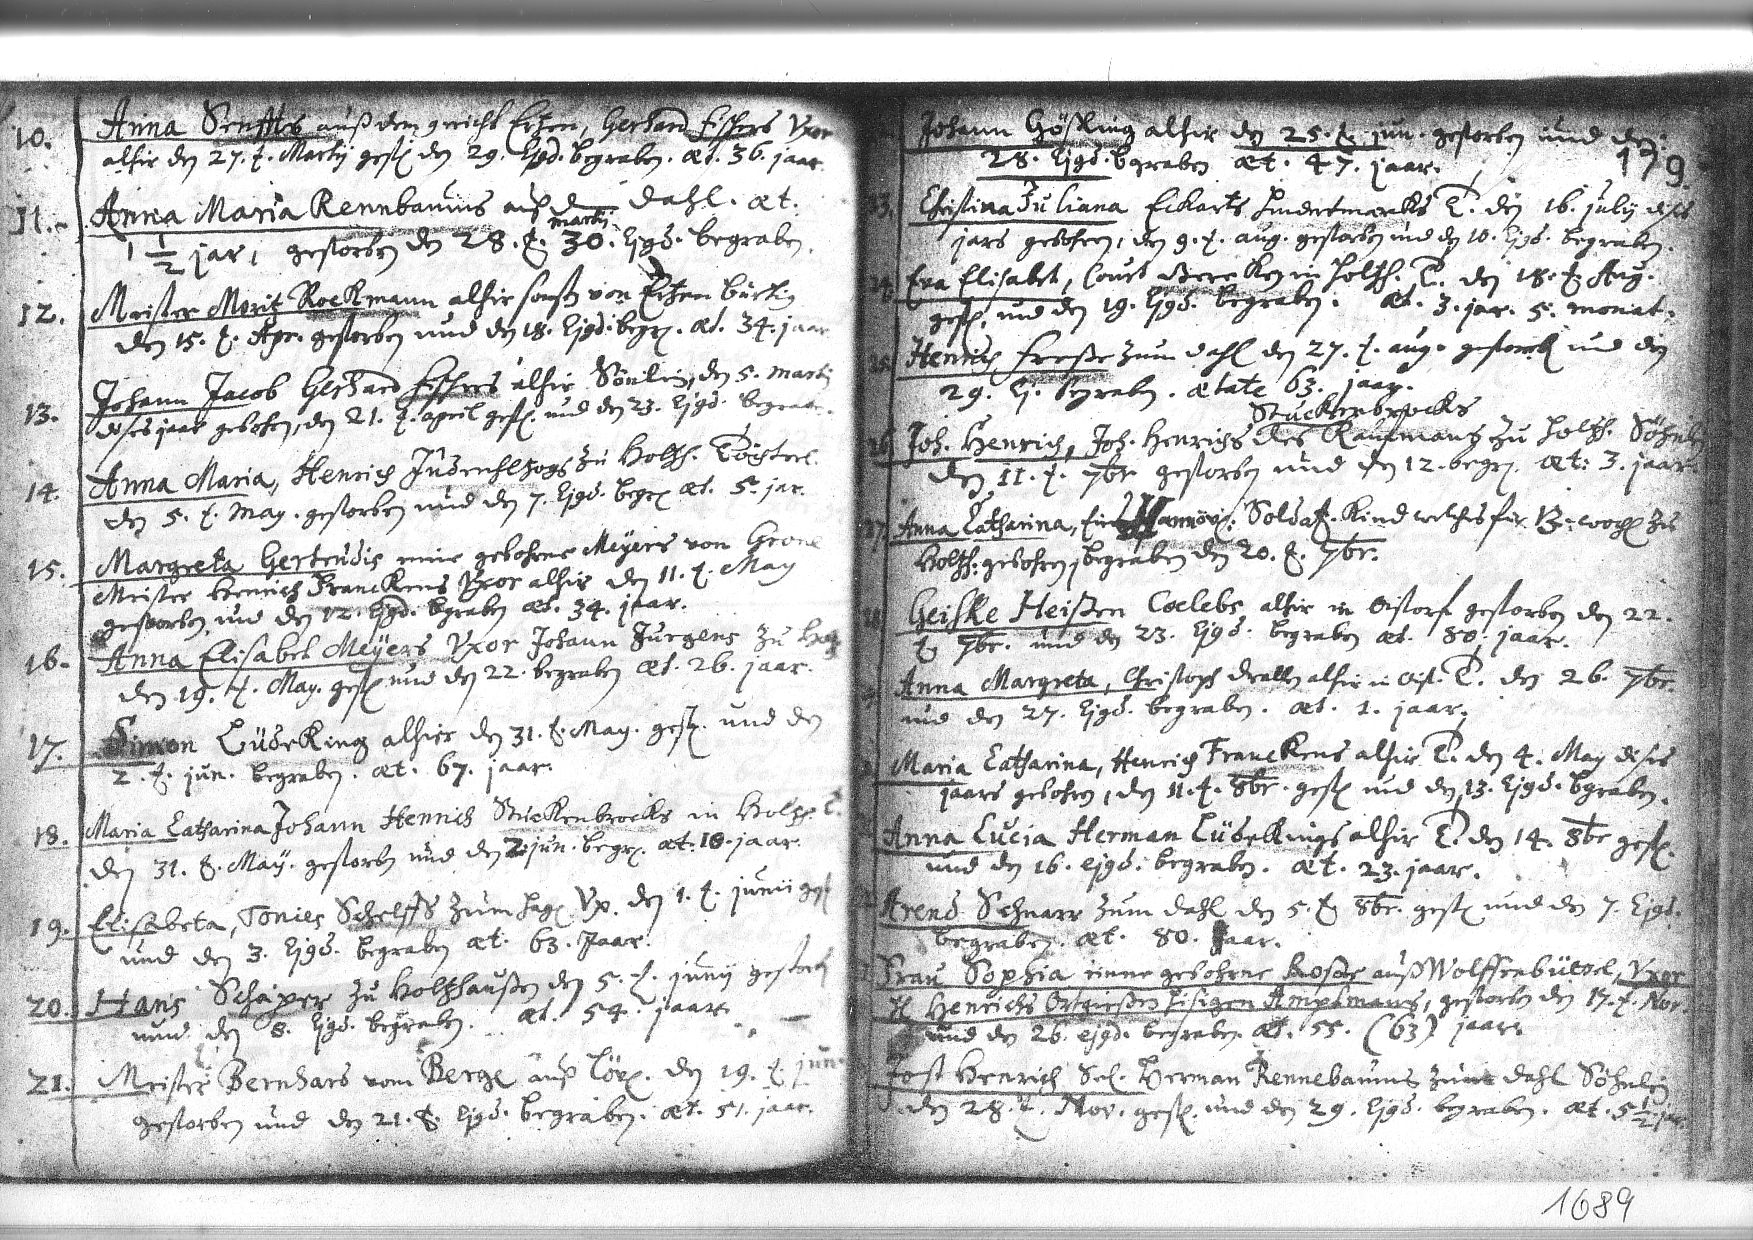 10. Anna Senfftes auß dem gericht Ertzen, Gerhard Fischers Vxor
alhir den 27. t. Martij gest. den 29. Ejsd. begraben. æt. 36. jaar.
11. Anna Maria Rennbaums auß dahl. æt.
martij
1 1/2 jar, gestorben den 28. t. 30. Ejsd. begraben.
12. Meister Moritz Rockmann alhir sonst von Ertzen bürtig
den 15. t. Apr. gestorben und den 18. Ejsd. begr. æt. 34. jaar
13. Johann Jacob Gerhard Fischers alhir Sönlein, den 5. martij
dises jaar gebohren, den 21. t. april gest. und den 23. Ejsd. begrab.
14. Anna Maria, Henrich zu Holtzh. Töchterl.
den 5. t. May. gestorben und den 7. Ejsd. begr. æt. 5. jar.
15. Margreta Gertrudis eine gebohrne Meÿers von
Meister Henrich Franckens Vxor alhir den 11. t. May
gestorben, und den 12. Ejsd. begraben æt. 34. jaar.
16. Anna Elisabet Meÿers Vxor Johann Jurgens zu
den 19. t. May. gest. und den 22. begraben æt. 26. jaar.
17. Simon Lüdeking alhir den 31. t. May. gest. und den
2. t. jun. begraben. æt. 67. jaar.
18. Maria Catharina Johann Henrich Stuckenbrocks in Holtzh. T.
den 31. t. Maÿ. gestorben und den 2. jun. begr. æt. 18. jaar.
19. Elisabeta, Tonies Schelffs zum hagen Vx. den 1. t. junii gest.
und den 3. Ejsd. begraben æt. 63. Jaar.
20. Hans Schäper zu Holtzhaußen den 5. t. junij gestorb.
und den 8. Ejsd. begraben. æt. 54. jaar.
21. Meister Bernhars vom Berge auß den 19. t. jun.
gestorben und den 21. t. Ejsd. begraben. æt. 51. jaar.
Johann Gößling alhir den 25. t. jun. gestorben und den
28. Ejsd. begraben æt. 47. jaar.
179.
23. Christina Juliana Eckarts T. den 16. julij dises
jars gebohren, den 9. t. aug. gestorben und den 10. Ejsd. begraben.
24. Eva Elisabet, Court in Holtzh. T. den 18. t. Aug.
gest. und den 19. Ejsd. begraben. æt. 3. jar. 5. monat.
25. Henrich zum dahl den 27. t. aug. gestorben und den
29. Ej. begraben. ætate 63. jaar.
Stuckenbrocks
26. Joh. Henrich, Joh. Henrichs des Kauffmans zu Holtzh. Söhnlein
den 11. t. 7br. gestorben und den 12. begr. æt: 3. jaar.
27. Anna Catharina, Eines Hannöv. Soldat. Kind welches für 13. woch. zu
Holtzh: gebohren, begraben den 20. t. 7br.
28. Geiske Heißen Coelebs alhir in Oistorf gestorben den 22.
t. 7br. und den 23. Ejsd. begraben æt. 80. jaar.
Anna Margreta, Christoph alhir in Oist. T. den 26. 7br.
und den 27. Ejsd. begraben. æt. 1. jaar.
Maria Catharina, Henrich Franckens alhir T. den 4. May dises
jaars gebohren, den 11. t. 8br. gest. und den 13. Ejsd. begraben.
Anna Lucia Herman Lüdekings alhir T. den 14. 8br gest.
und den 16. ejsd. begraben. æt. 23. jaar.
Arend Schnarr zum dahl den 5. t. 8br. gest. und den 7. Ejsd.
begraben. æt. 80. Jaar.
Frau Sophia einne gebohrne Roste auß Wolffenbüttel, Vxor
H. Henrichs hisigen Amptmans, gestorben den 17. t. Nov.
und den 26. ejsd. begraben æt. 55. (63) jaar.
Jost Henrich Sel. Herman Rennebaums zum dahl Söhnlein
den 28. t. Nov. gest. und den 29. Ejsd. begraben. æt. 5 1/2 jar.
1689